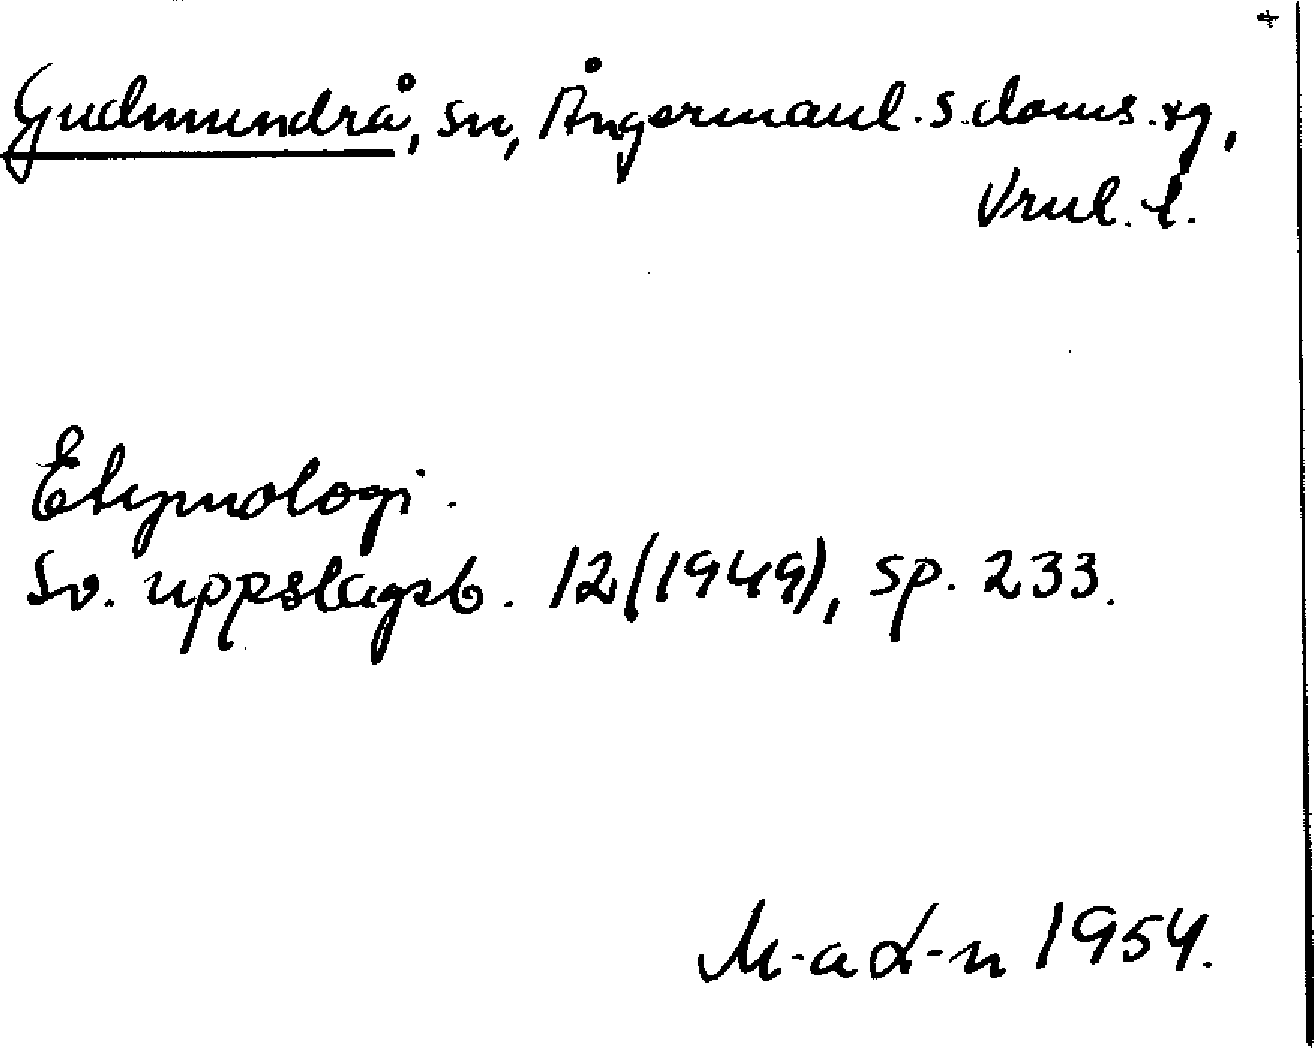 Gudmundrå, sn, Ångermanl. s. doms. tg,
Vrnl. l.
Etymologi.
Sv. uppslagsb. 12 (1949), sp. 233.
M-a L-n 1954.